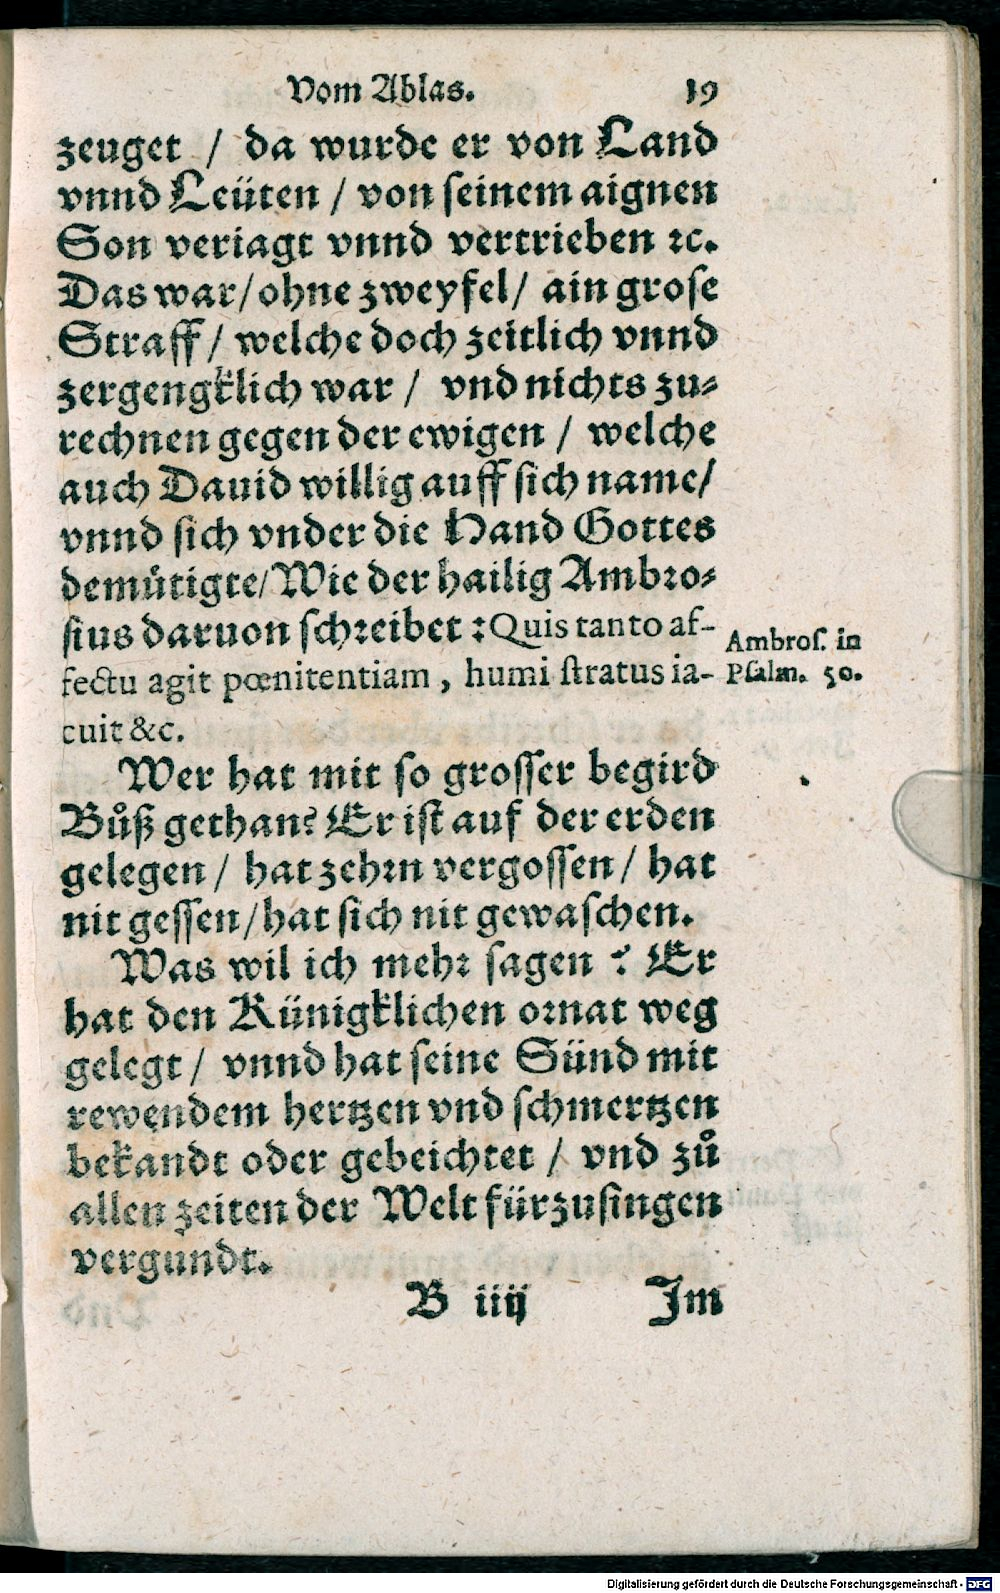 Vom Ablas. 19
zeuget / da wurde er von Land
vnnd Leüten / von ſeinem aignen
Son veriagt vnnd vertrieben ꝛc.
Das war / ohne zweyfel / ain groſe
Straff / welche doch zeitlich vnnd
zergengklich war / vnd nichts zu⸗
rechnen gegen der ewigen / welche
auch Dauid willig auff ſich name /
vnnd ſich vnder die Hand Gottes
demuͤtigte / Wie der hailig Ambꝛo⸗
ſius daruon ſchꝛeibet : Quis tanto af-
fectu agit pœnitentiam , humi ſtratus ia-
cuit &c.
Ambroſ. in
Pſalm. 50.
Wer hat mit ſo groſſer begird
Bůß gethan? Er iſt auf der erden
gelegen / hat zehꝛn vergoſſen / hat
nit geſſen / hat ſich nit gewaſchen.
Was wil ich mehꝛ ſagen ? Er
hat den Künigklichen oꝛnat weg
gelegt / vnnd hat ſeine Sünd mit
rewendem hertzen vnd ſchmertzen
bekandt oder gebeichtet / vnd zů
allen zeiten der Welt fürzuſingen
vergundt.
B iiij Im
Digitalisierung gefördert durch die Deutsche Forschungsgemeinschaft - DFG